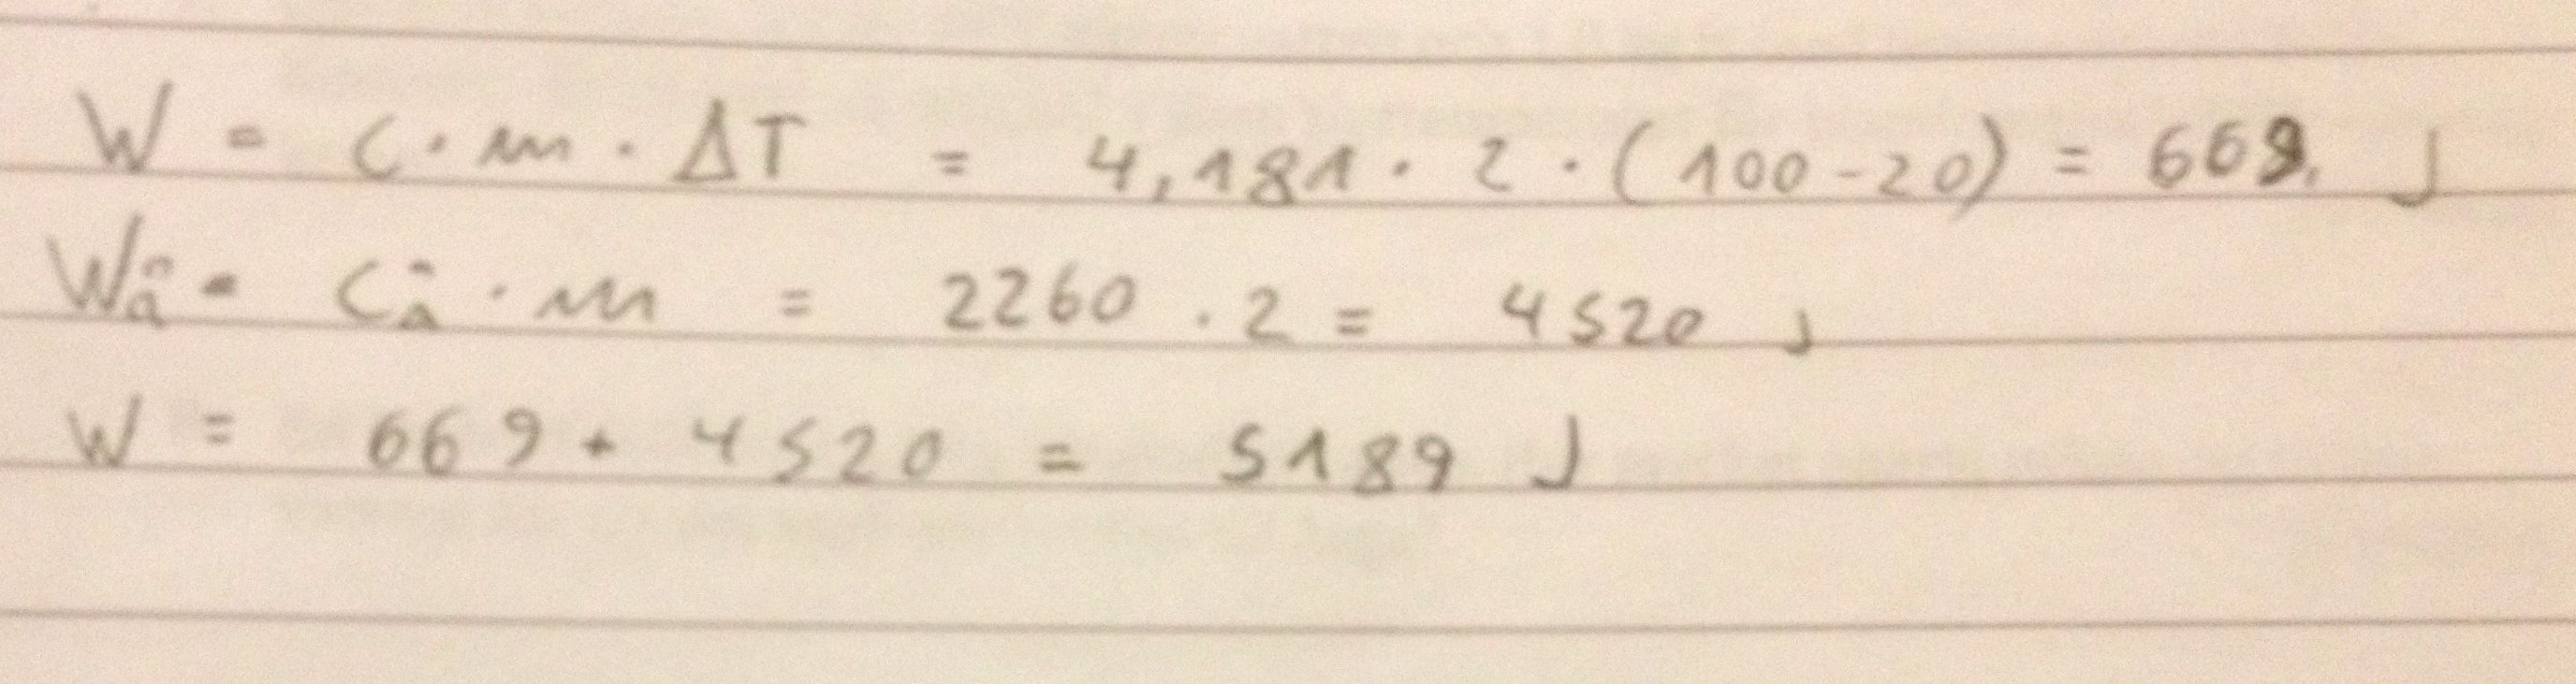 W = c · m · ΔT = 4,181 · 2 · (100 - 20) = 669 J
Wä = cä · m = 2260 · 2 = 4520 J
W = 669 + 4520 = 5189 J